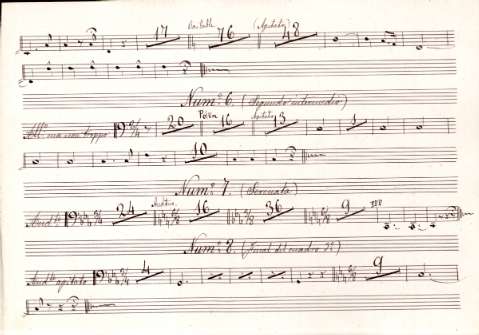 17 76 (Agitato) 48
Num.º 6. (Segundo intermedio)
All.º ma non troppo 2/4 20 16 13 1
10
Num.º 7. (Serenata)
And.te 24 16 36 9 ppp
Num.º 8. (Final del cuadro 3º)
And.te agitato 4 9